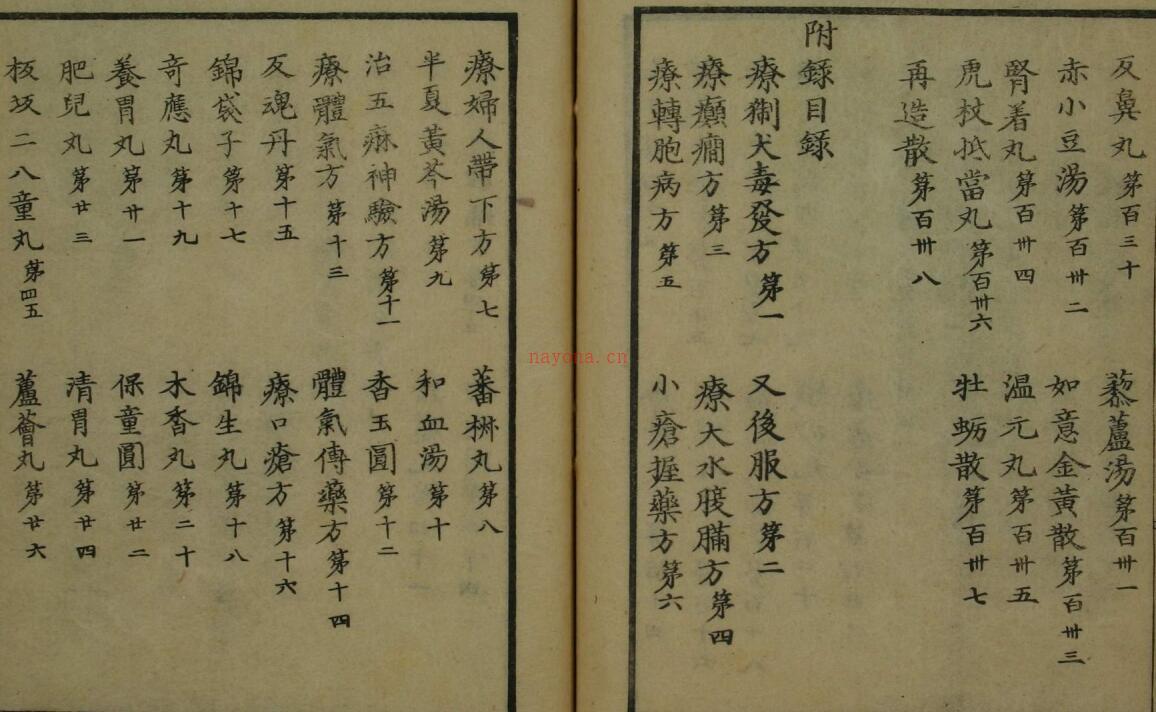 反鼻丸 第百三十 藜蘆湯 第百卅一
赤小豆湯 第百卅二 如意金黃散 第百卅三
腎着丸 第百卅四 温元丸 第百卅五
虎杖抵當丸 第百卅六 牡蛎散 第百卅七
再造散 第百卅八
附錄目錄
療猘犬毒發方 第一 又後服方 第二
療癲癇方 第三 療大水腹滿方 第四
療轉胞病方 第五 小瘡握藥方 第六
療婦人帶下方 第七 蕃椒丸 第八
半夏黃芩湯 第九 和血湯 第十
治五痳神驗方 第十一 香玉圓 第十二
療體氣方 第十三 體氣傳藥方 第十四
反魂丹 第十五 療口瘡方 第十六
錦袋子 第十七 錦生丸 第十八
奇應丸 第十九 木香丸 第二十
養胃丸 第廿一 保童圓 第廿二
肥兒丸 第廿三 清胃丸 第廿四
板坂二八童丸 第四五 蘆薈丸 第廿六
nayona.cn